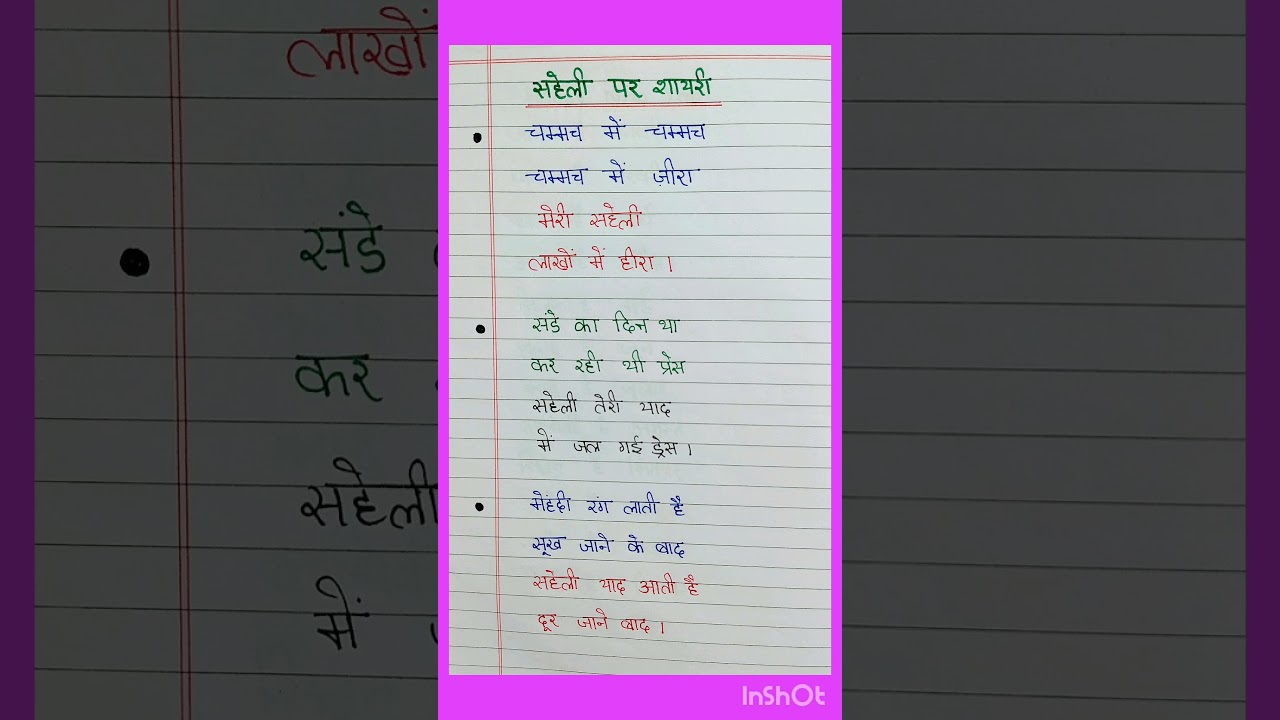 सहेली पर शायरी
चम्मच में चम्मच
चम्मच में ज़ीरा
मेरी सहेली
लाखों में हीरा।
संडे का दिन था
कर रही थी प्रेस
सहेली तेरी याद
में जल गई ड्रेस।
मेहंदी रंग लाती है
सूख जाने के बाद
सहेली याद आती है
दूर जाने बाद।
लाखों
संडे
कर
सहेली
में
InShOt